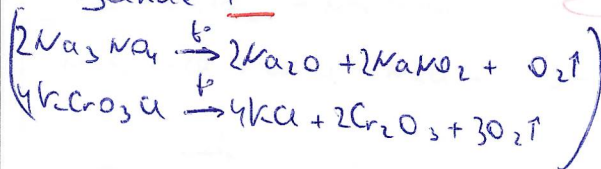 2Na₃NO₄ t°→ 2Na₂O + 2NaNO₂ + O₂↑
4KCrO₃Cl t°→ 4KCl + 2Cr₂O₃ + 3O₂↑